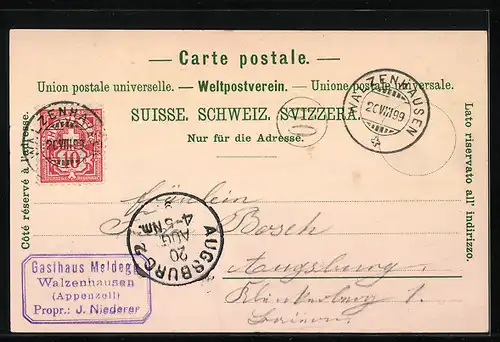 — Carte postale. —
Union postale universelle. — Weltpostverein. — Unione postale universale.
SUISSE. SCHWEIZ. SVIZZERA.
Nur für die Adresse.
Côté réservé à l'adresse.
Lato riservato all' indirizzo.
WALZENHAUSEN
20 VIII 99
WALZENHAUSEN
20 VIII 99
10
Fräulein
Bosch
Augsburg
Klinkerberg 1
AUGSBURG 2.
20
AUG
4-5 Nm.
Gasthaus Meldegg
Walzenhausen
(Appenzell)
Propr.: J. Niederer